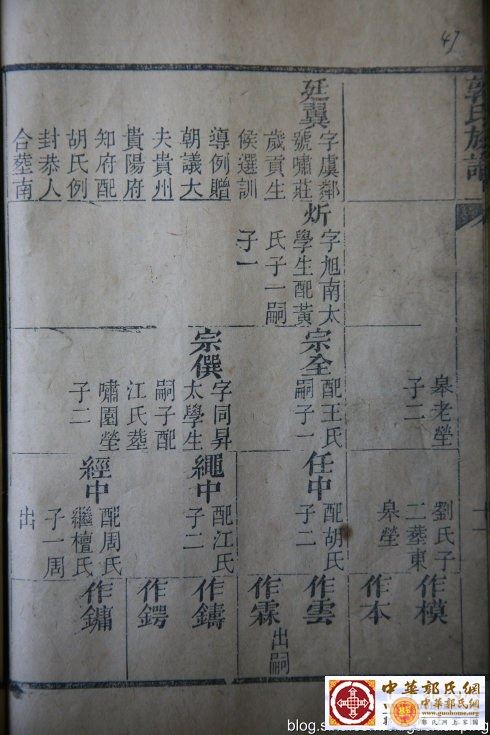 47
郭氏族譜
廷翼
字虞鄰
號嘯莊
歲貢生
候選訓
導例贈
朝議大
夫貴州
貴陽府
知府配
胡氏例
封恭人
合塟南
炘
字旭南太
學生配黃
氏子一嗣
子一
皋老塋
子二
宗全
配王氏
嗣子一
宗僎
字同昇
太學生
嗣子配
江氏塟
嘯園塋
子二
劉氏子
二塟東
皋塋
任中
配胡氏
子二
繩中
配江氏
子二
經中
配周氏
繼檀氏
子一周
出
作模
作本
作雲
作霖
出嗣
作鑄
作鍔
作鏞
中華郭氏網
中華郭氏網
www.guohome.org
郭氏網上家園